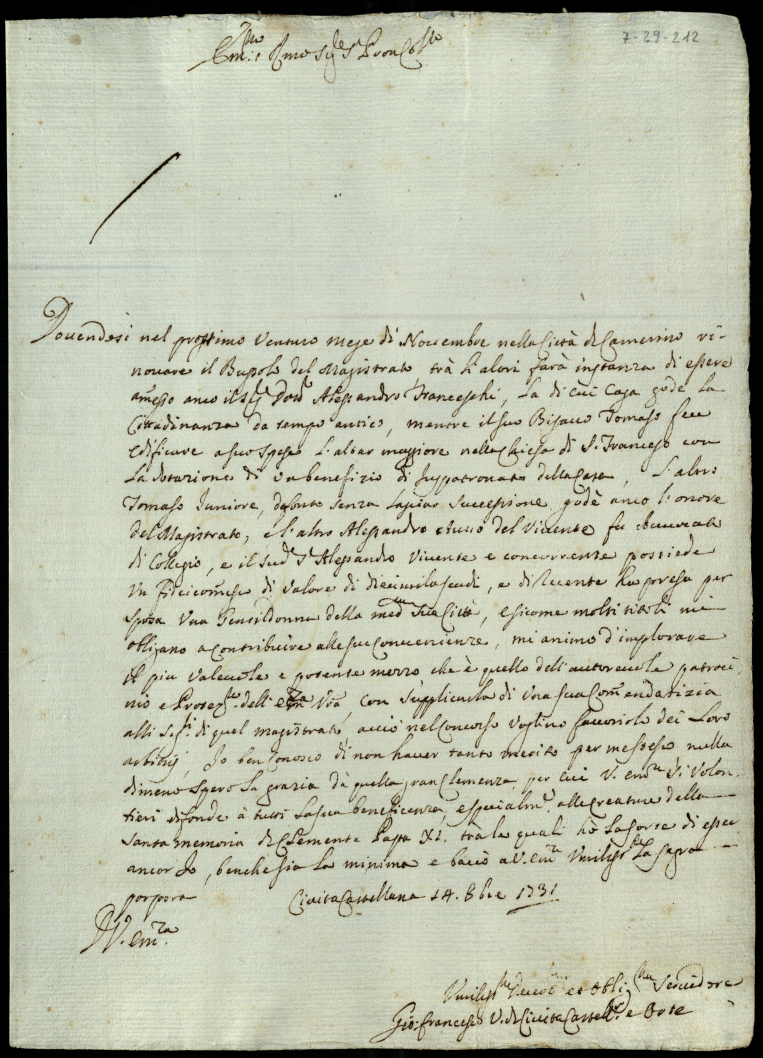 7-29-212
Em.mo Rmo Sig.re Pron Col.mo
Dovendosi nel prossimo venturo mese di Novembre nella Città di Camerino ri-
novare il Bussolo del Magistrato trà l'altri farà instanza di essere
amesso anco il Sig.r Dott.r Alessandro Franceschi, la di cui Casa gode la
Cittadinanza da tempo antico, mentre il suo Bisavo Tomaso fece
edificare a sue spese l'altar maggiore nella Chiesa di S. Francesco con
la dotazione di un benefizio di Juspatronato della Casa, l'altro
Tomaso Juniore, defonto senza lasciar successione gode anco l'onore
del Magistrato, e l'altro Alessandro Avvo del Vivente fu Avvocato
di Collegio, e il sud.o S.r Alessandro Vivente e concorrente possiede
un fideicomisso di valore di diecimila scudi, e di recente ha preso per
sposa una Gentildonna della med.ma sua Città, e siccome molti titoli mi
obligano a contribuire alle sue convenienze, mi animo d'implorare
il più valevole e potente mezzo che è quello dell'autorevole patroci-
nio e Protez.ne dell' Em.za Vra, con supplicarla di una sua Com̃endatizia
alli S.ri di quel magistrato acciò nel Concorso voglino favorirlo dei loro
Io ben conosco di non haver tanto merito per me stesso nulla
dimeno spero la grazia dà quella gran Clemenza, per cui V. Em.za di volon-
tieri difonde à tutti la sua beneficenza, e specialm.te alle creature della
santa memoria di Clemente Papa XI. tra le quali hò la sorte di esser
ancor Io, benche sia la minima e bacio a V. Em.za Umiliss.te la sagra
porpora Civita Castellana 14. 8bre 1731
D V. Em.za
Umiliss.mo Devot.mo et Obli.mo Servidore
Gio: Francesco V. di Civita Castell.a e Orte